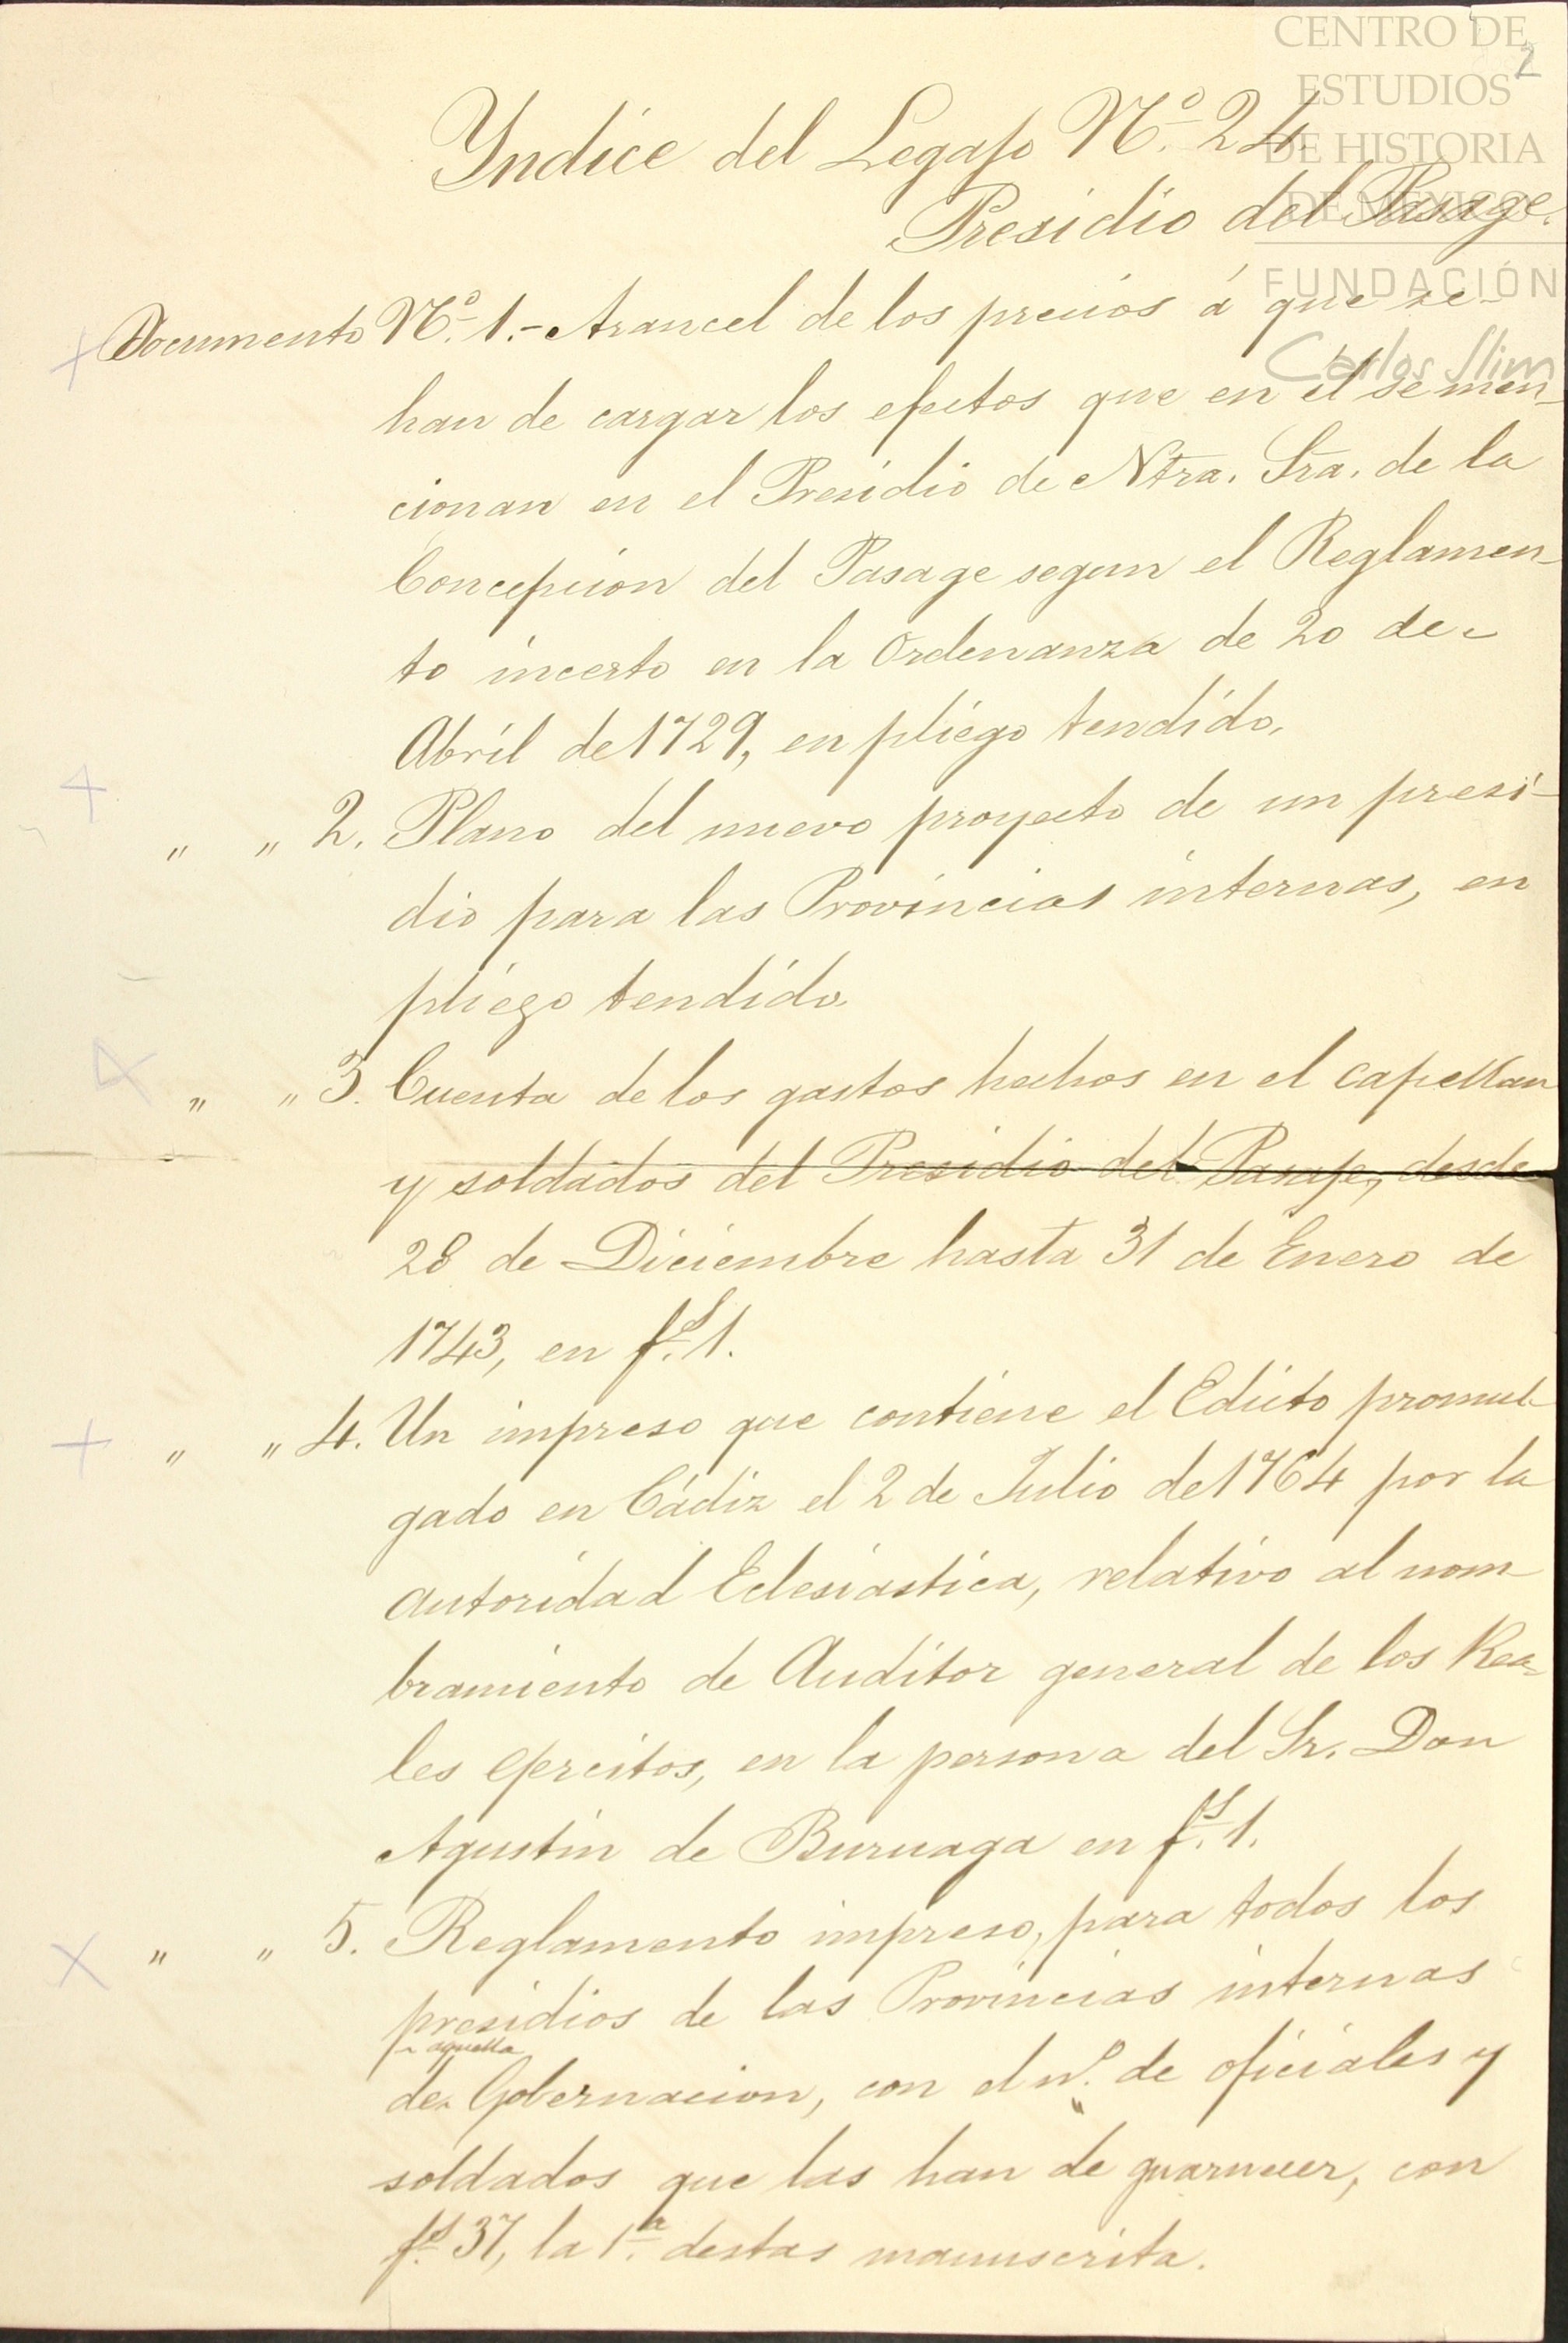 CENTRO DE
ESTUDIOS
DE HISTORIA
DE MÉXICO
FUNDACIÓN
Carlos Slim
2
Yndice del Legajo N.º 24.
Presidio del Pasage.
Documento N.º 1.- Arancel de los precios á que se-
han de cargar los efectos que en él se men-
cionan en el Presidio de Ntra. Sra. de la
Concepcion del Pasage segun el Reglamen-
to incerto en la Ordenanza de 20 de-
Abril de 1729, en pliego tendido.
" " 2. Plano del nuevo proyecto de un presi-
dio para las Provincias internas, en
pliego tendido.
" " 3. Cuenta de los gastos hechos en el capellan
y soldados del Presidio del Pasaje, desde
28 de Diciembre hasta 31 de Enero de
1743, en f.s 1.
" " 4. Un impreso que contiene el Edicto promul-
gado en Cádiz el 2 de Julio de 1764 por la
autoridad Eclesiastica, relativo al nom-
bramiento de Auditor general de los Rea-
les ejercitos, en la persona del Sr. Don
Agustin de Buruaga en f.s 1.
" " 5. Reglamento impreso, para todos los
presidios de las Provincias internas
aquella
de Gobernacion, con el n.º de oficiales y
soldados que las han de guarnecer, con
f.s 37, la 1.ª destas manuscrita.